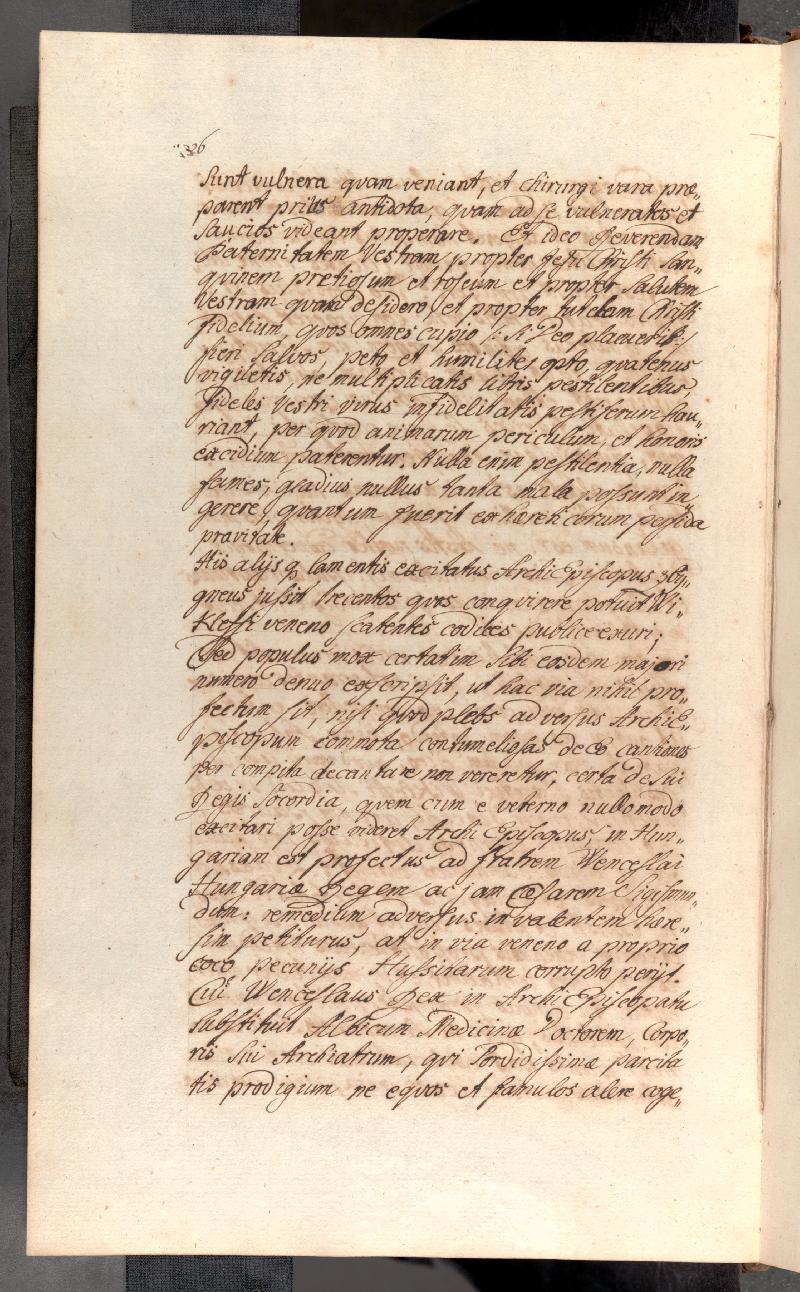 26
sunt vulnera quam veniant, et chirurgi vara præ„
parent prius antidota, quam ad se vulneratos et
saucios videant properare. Et ideo Reverendam
Paternitatem Vestram propter Jesu Christi San„
guinem pretiosum et roseum et propter salutem
Vestram quam desidero, et propter tutelam Christi
fidelium, quos omnes cupio /: si Deo placuerit :/
fieri salvos, peto et humiliter opto, quatenus
vigiletis, ne multiplicatis libris pestilentibus,
Fideles Vestri virus infidelitatis pestiferum hau„
riant, per quod animarum periculum, et honoris
excidium paterentur. Nulla enim pestilentia, nulla
fames, gladius nullus tanta mala possunt in„
gerere, quantum fuerit ex hæreticorum perfida
pravitate.
His alijsq lamentis excitatus ArchiEpiscopus Sby„
gneus jussit trecentos quos conquirere potuit Wi„
kleffi veneno scatentes codices publice exuri;
Sed populus mox certatim sibi eosdem majori
numero denuo exscripsit, ut hac via nihil pro„
fectum sit, nisi quod plebs adversus ArchiE„
piscopum commota contumeliosas de eo cantiones
per compita decantare non vereretur, certa de sui
Regis socordia, quem cum e veterno nullo modo
excitari posse videret ArchiEpiscopus, in Hun„
gariam est profectus ad fratrem Wenceslai
Hungariæ Regem ac jam Cæsarem Sigismun„
dum: remedium adversus invalentem hære„
sim petiturus, at in via veneno a proprio
coco pecunijs Hussitarum corrupto perijt.
Cui Wenceslaus Rex in ArchiEpiscopatu
substituit Albicum Medicinæ Doctorem, Corpo„
ris sui Archiatrum, qvi Sordidissimæ parcita
tis prodigium ne equos et famulos alere coge„